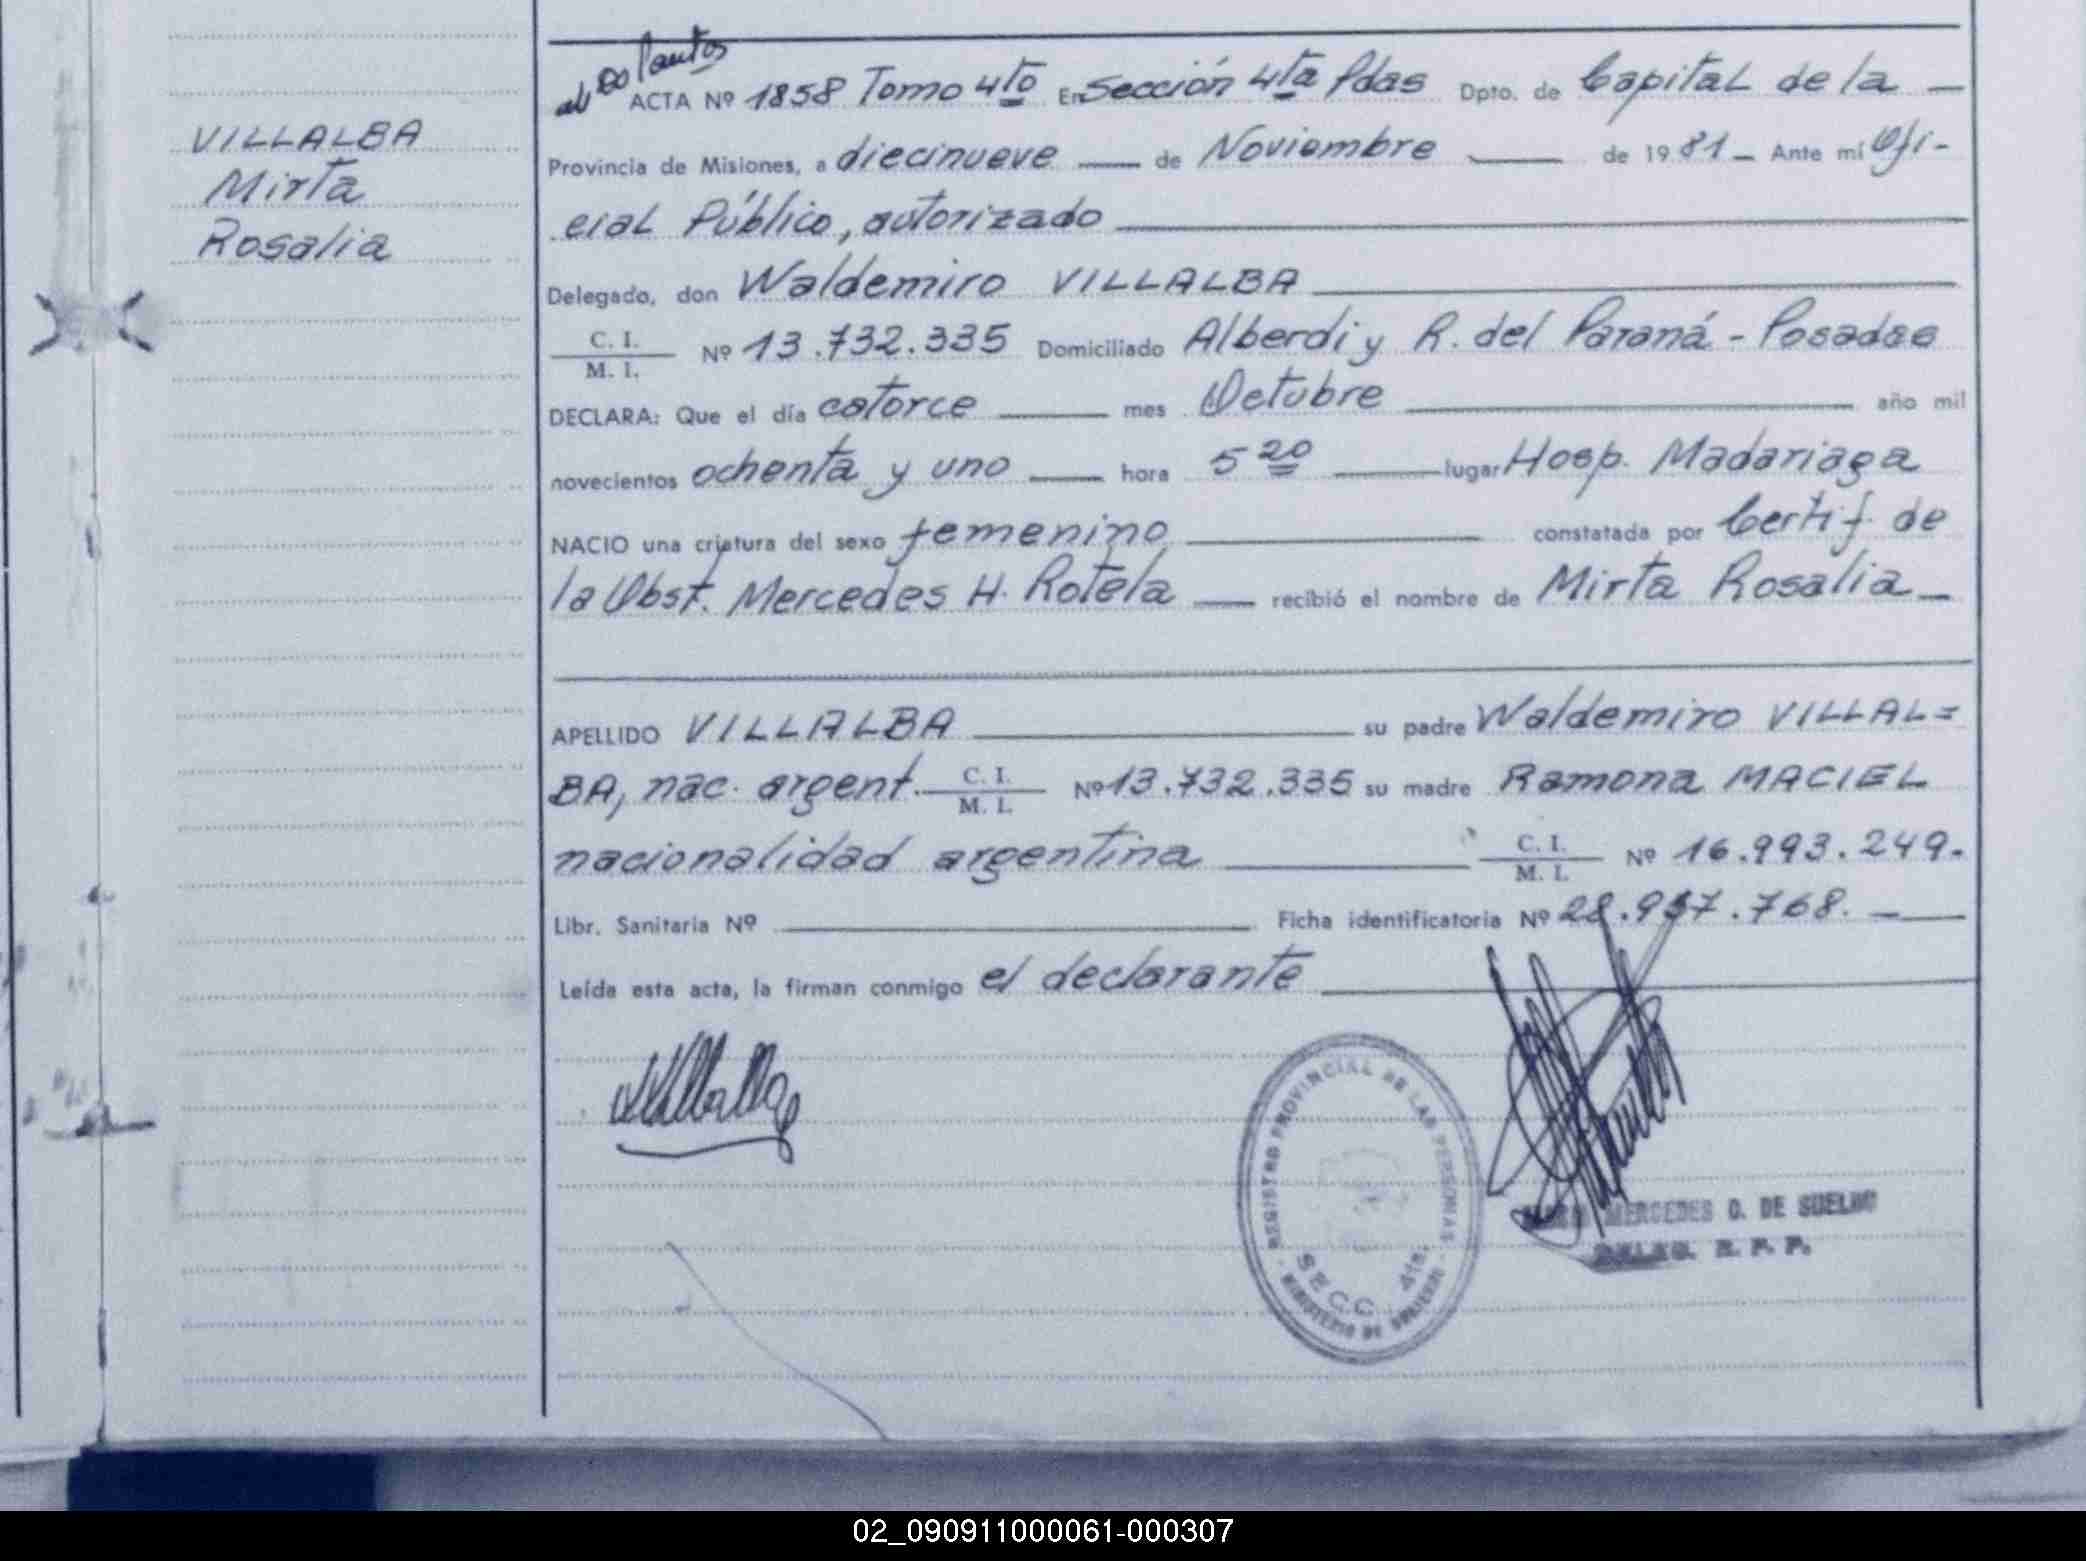 VILLALBA
Mirta
Rosalia
ACTA Nº 1858 Tomo 4to En Sección 4ta Pdas Dpto. de Capital de la —
Provincia de Misiones, a diecinueve — de Noviembre — de 1981 — Ante mí Ofi-
cial Público, autorizado
Delegado, don Waldemiro VILLALBA
C. I.
M. I. Nº 13.732.335 Domiciliado Alberdi y R. del Paraná - Posadas
DECLARA: Que el día catorce — mes Octubre — año mil
novecientos ochenta y uno — hora 5 20 — lugar Hosp. Madariaga
NACIO una criatura del sexo femenino — constatada por Certif. de
la Obst. Mercedes H. Rotela — recibió el nombre de Mirta Rosalia —
APELLIDO VILLALBA — su padre Waldemiro VILLAL=
BA, nac. argent. — C. I.
M. I. Nº 13.732.335 su madre Ramona MACIEL
nacionalidad argentina — C. I.
M. I. Nº 16.993.249.
Libr. Sanitaria Nº — Ficha identificatoria Nº 28.937.768. —
Leída esta acta, la firman conmigo el declarante
REGISTRO PROVINCIAL DE LAS PERSONAS
SECC. 4ta.
MINISTERIO DE GOBIERNO
MERCEDES O. DE SUELHO
DELEG. R. P. P.
02_090911000061-000307